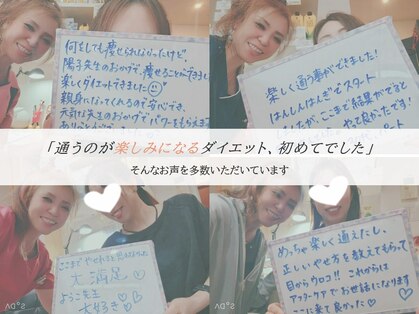 何をしても痩せられなかったけど
陽子先生のおかげで、痩せることができました
楽しくダイエットできました
親身になってくれるので安心でき、
元気な先生のおかげでパワーをもらえます
楽しく通う事ができました!
はんしんはんぎでスタート
ここまで結果がでると
やって良かったです
「通うのが楽しみになるダイエット、初めてでした」
そんなお声を多数いただいています
ここまでやせれると思わなかった
大満足
ようこ先生
大好き♡
めっちゃ楽しく通えたし、
正しいやせ方を教えてもらって
目からウロコ!! これからは
アフターケアでお世話になります
ここに来て良かった♡